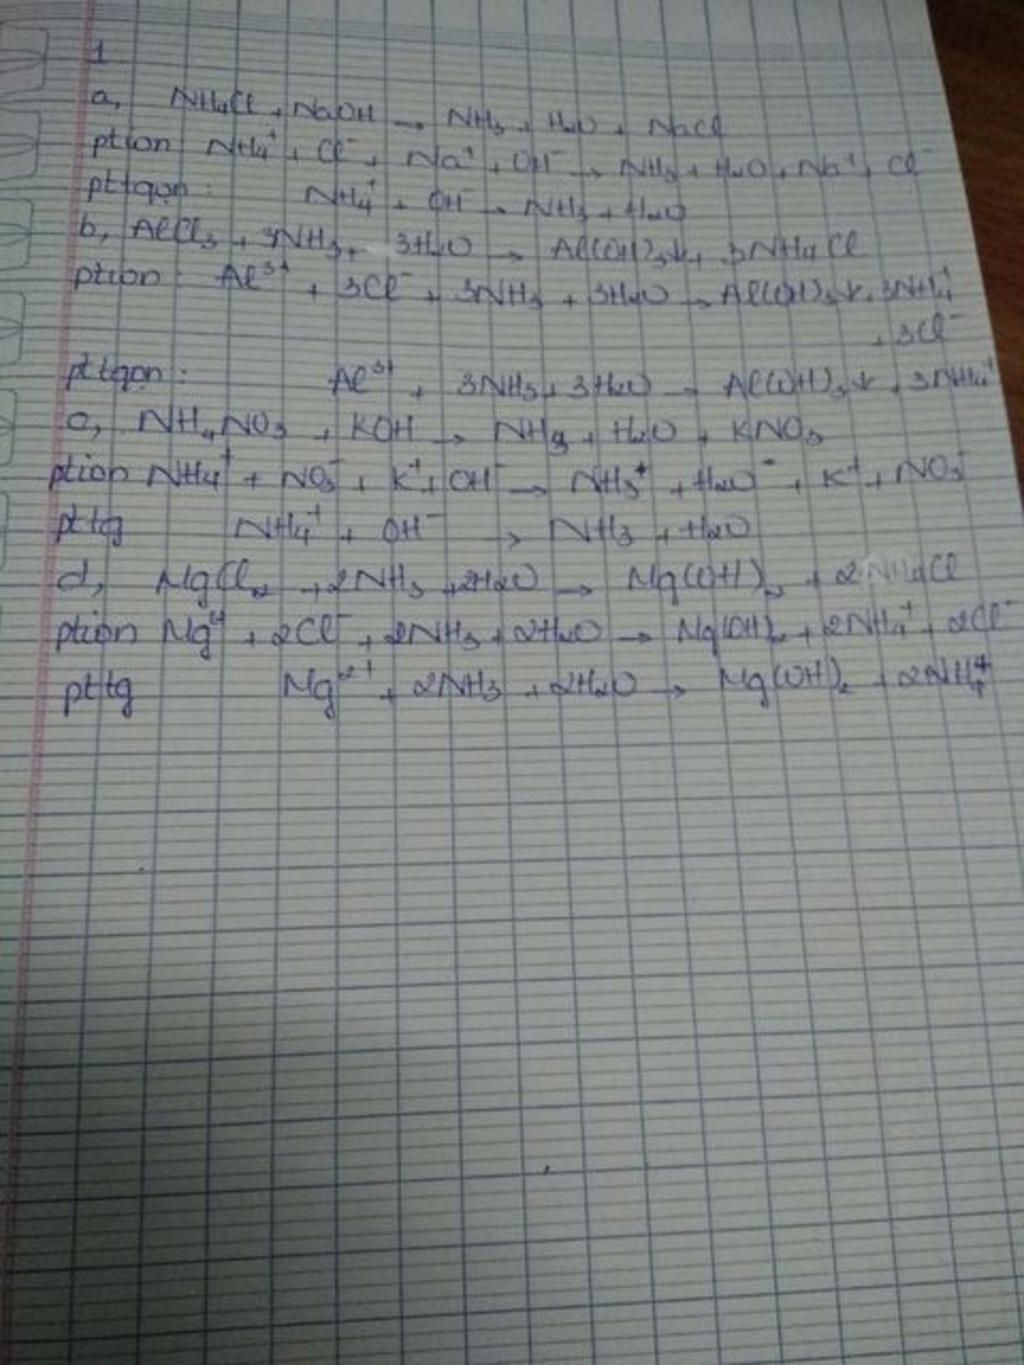 1
a, NH₄Cl + NaOH → NH₃ + H₂O + NaCl
ption NH₄⁺ + Cl⁻ + Na⁺ + OH⁻ → NH₃ + H₂O + Na⁺ + Cl⁻
pttgọn : NH₄⁺ + OH⁻ → NH₃ + H₂O
b, AlCl₃ + 3NH₃ + 3H₂O → Al(OH)₃↓ + 3NH₄Cl
ption : Al³⁺ + 3Cl⁻ + 3NH₃ + 3H₂O → Al(OH)₃↓ + 3NH₄⁺
+ 3Cl⁻
pttgọn : Al³⁺ + 3NH₃ + 3H₂O → Al(OH)₃↓ + 3NH₄⁺
c, NH₄NO₃ + KOH → NH₃ + H₂O + KNO₃
ption NH₄⁺ + NO₃⁻ + K⁺ + OH⁻ → NH₃⁺ + H₂O⁻ + K⁺ + NO₃⁻
pttg NH₄⁺ + OH⁻ → NH₃ + H₂O
d, MgCl₂ + 2NH₃ + 2H₂O → Mg(OH)₂ + 2NH₄Cl
ption Mg²⁺ + 2Cl⁻ + 2NH₃ + 2H₂O → Mg(OH)₂ + 2NH₄⁺ + 2Cl⁻
pttg Mg²⁺ + 2NH₃ + 2H₂O → Mg(OH)₂ + 2NH₄⁺